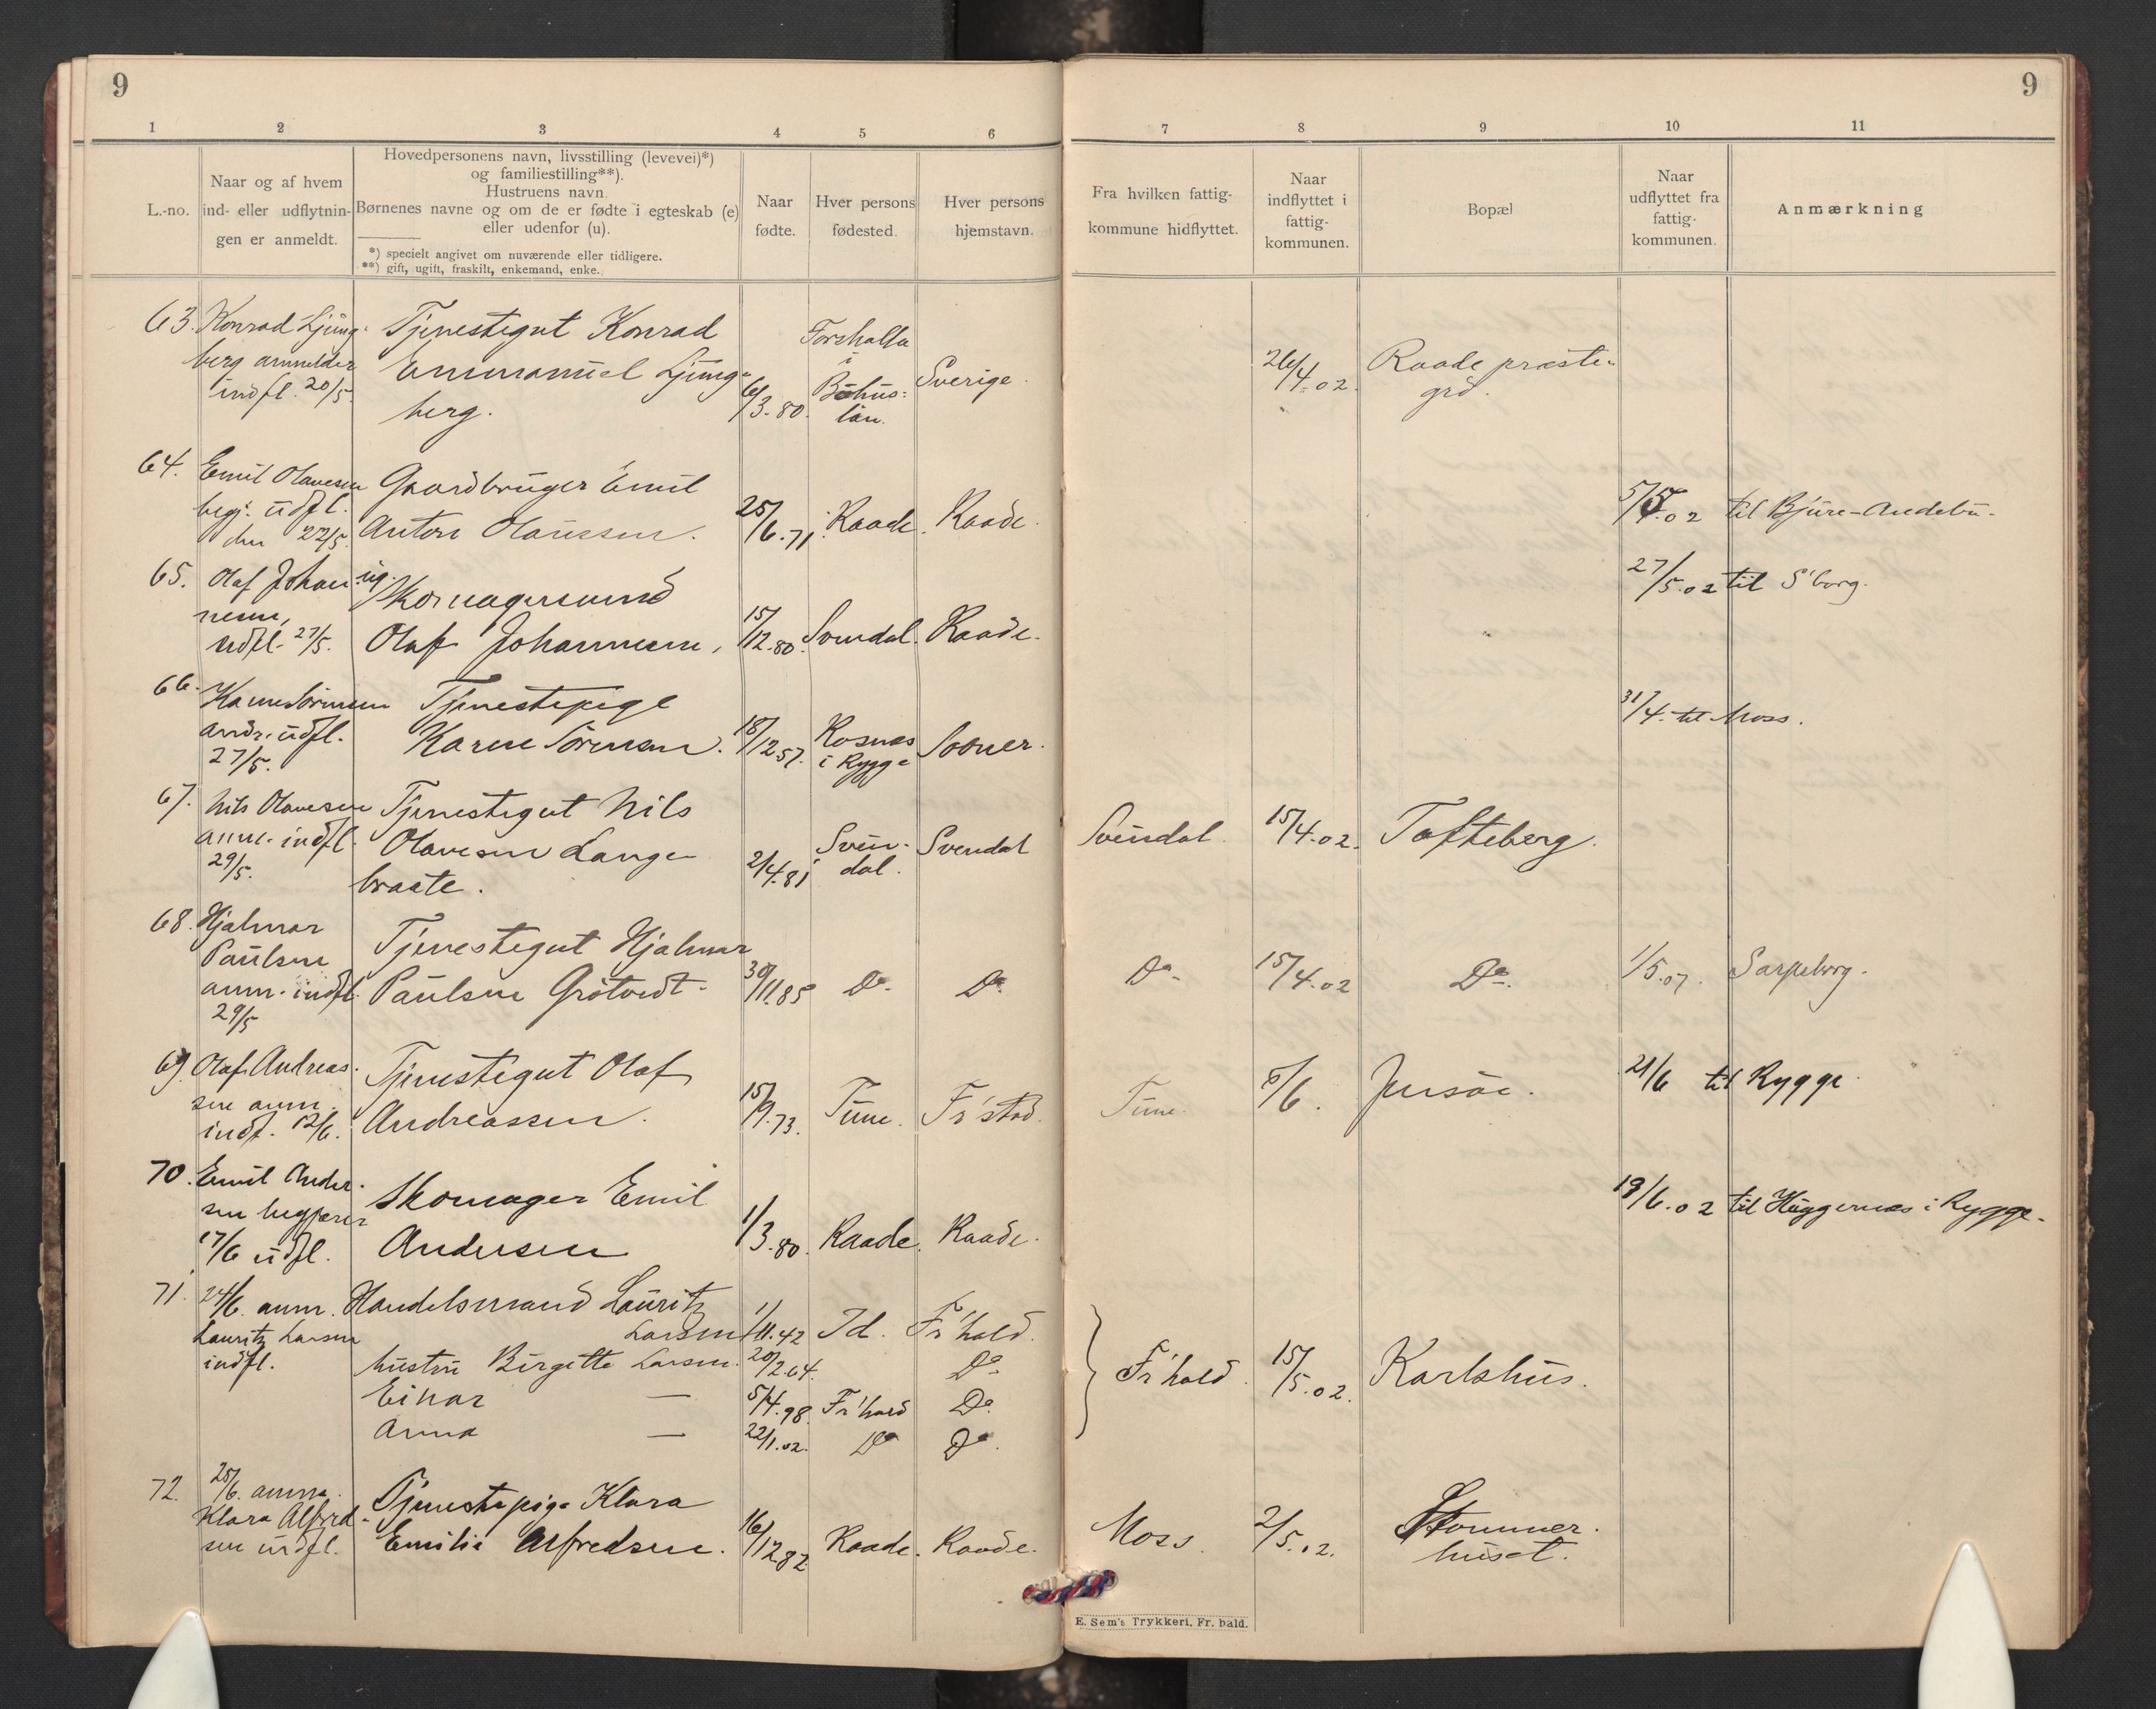 9
9
1 2 3 4 5 6 7 8 9 10 11
L.-no.
Naar og af hvem
ind- eller udflytnin-
gen er anmeldt.
Hovedpersonens navn, livsstilling (levevei)*)
og familiestilling**).
Hustruens navn.
Børnenes navne og om de er fødte i egteskab (e)
eller udenfor (u).
*) specielt angivet om nuværende eller tidligere.
**) gift, ugift, fraskilt, enkemand, enke.
Naar
fødte.
Hver persons
fødested.
Hver persons
hjemstavn.
Fra hvilken fattig-
kommune hidflyttet.
Naar
indflyttet i
fattig-
kommunen.
Bopæl
Naar
udflyttet fra
fattig-
kommunen.
Anmærkning
63. Konrad Ljung-
berg anmelder
indfl. 20/5.
Tjenestegut Konrad
Emmanuel Ljung-
berg.
6/3.80.
Forshälla
i
Bohus-
län.
Sverige.
26/4.02.
Raade præste-
grd.
64. Emil Olavesen
begj. udfl.
den 22/5.
Gaardbruger Emil
Anton Olaussen.
25/6.71.
Raade.
Raade.
02 til
65. Olaf Johan-
nesen,
udfl. 27/5.
ug.
Skomagersvend
Olaf Johannesen,
15/12.80.
Svendal.
Raade.
27/5.02 til S'borg.
66. Karen Sørensen
udfl.
27/5.
Tjenestepige
Karen Sørensen.
18/12 57.
Rosnæs
i Rygge
Sooner.
31/4. til Moss.
67. Nils Olavesen
anm. indfl.
29/5.
Tjenestegut Nils
Olavesen Lange-
braate.
2/4.81
Sven-
dal.
Svendal
Svendal.
15/4.02.
Tofteberg.
68. Hjalmar
Paulsen
anm. indfl.
29/5
Tjenestegut Hjalmar
Paulsen Grötvedt.
30/11.85
Do.
Do.
Do.
15/4.02
Do.
1/5.07.
Sarpsborg.
69. Olaf Andreas-
sen anm.
indf. 12/6.
Tjenestegut Olaf
Andreassen.
15/9.73.
Tune.
Fr'stad.
Tune.
/6.
Jensöe.
21/6 til Rygge.
70. Emil Ander-
sen begjærer
17/6 udfl.
Skomager Emil
Andersen
1/3.80.
Raade.
Raade.
19/6.02 til Huggenæs i Rygge.
71. 24/6. anm.
Lauritz Larsen
indfl.
Handelsmand Lauritz
Larsen
1/11.42
Id.
Fr'hald.
hustru Birgitte Larsen.
20/2.64.
Do
Einar —
5/4.98.
Fr'hald
Do.
Anna —
22/1.02.
Do
Do.
Fr'hald.
15/5.02.
Karlshus.
72. 25/6. anm.
Klara Alfred-
sen indfl.
Tjenestepige Klara
Emilie Alfredsen.
16/12 82
Raade.
Raade.
Moss.
2/5.02.
Stommer-
huset.
E. Sem's Trykkeri, Fr. hald.